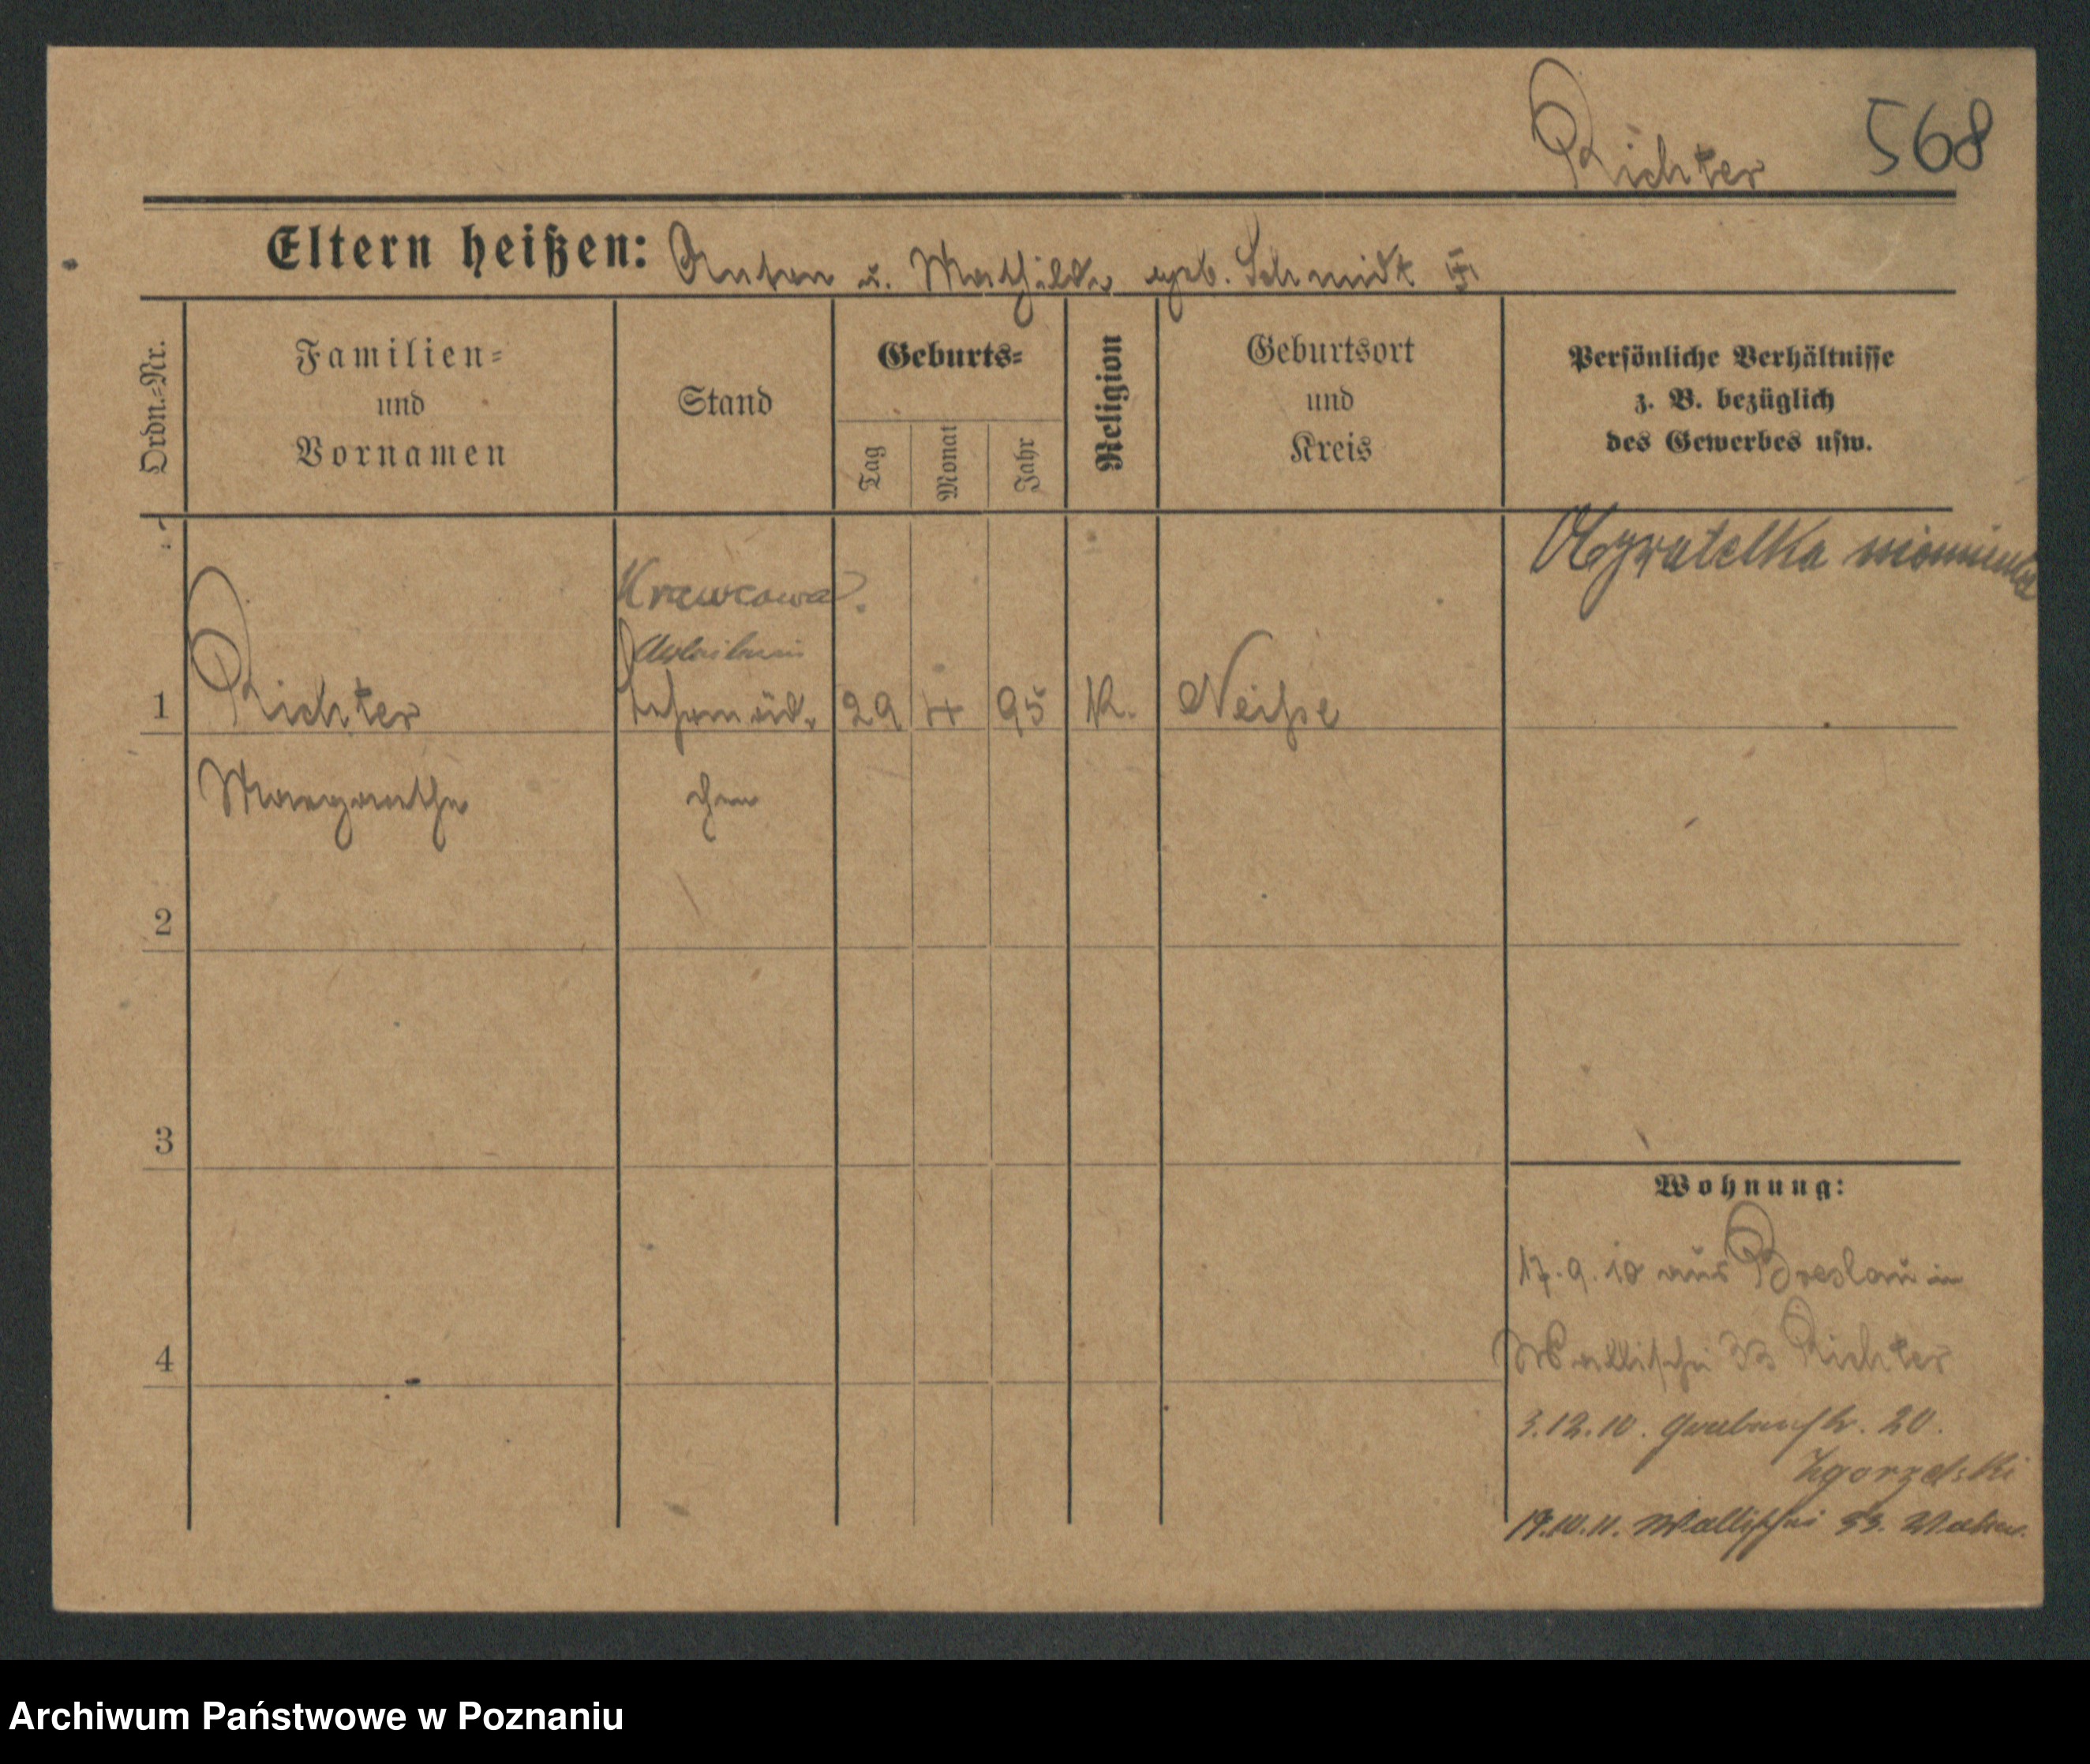 Richter 568
Eltern heißen: Anton u. Mathilde geb. Schmidt
Ordn.=Nr.
Familien=
und
Vornamen
Stand
Geburts=
Tag
Monat
Jahr
Religion
Geburtsort
und
Kreis
Persönliche Verhältnisse
z. B. bezüglich
des Gewerbes usw.
Obywatelka niemiecka
Krawcowa
Arbeiterin
1 Richter Lehrmäd= 29 4 95 K. Neiße
Margarethe chen
2
3
4
Wohnung:
17.9.10 aus Breslau in
Wallischei 33 Richter
3.12.10. Grabenstr. 20.
Zgorzelski
Wallischei 33.
Archiwum Państwowe w Poznaniu